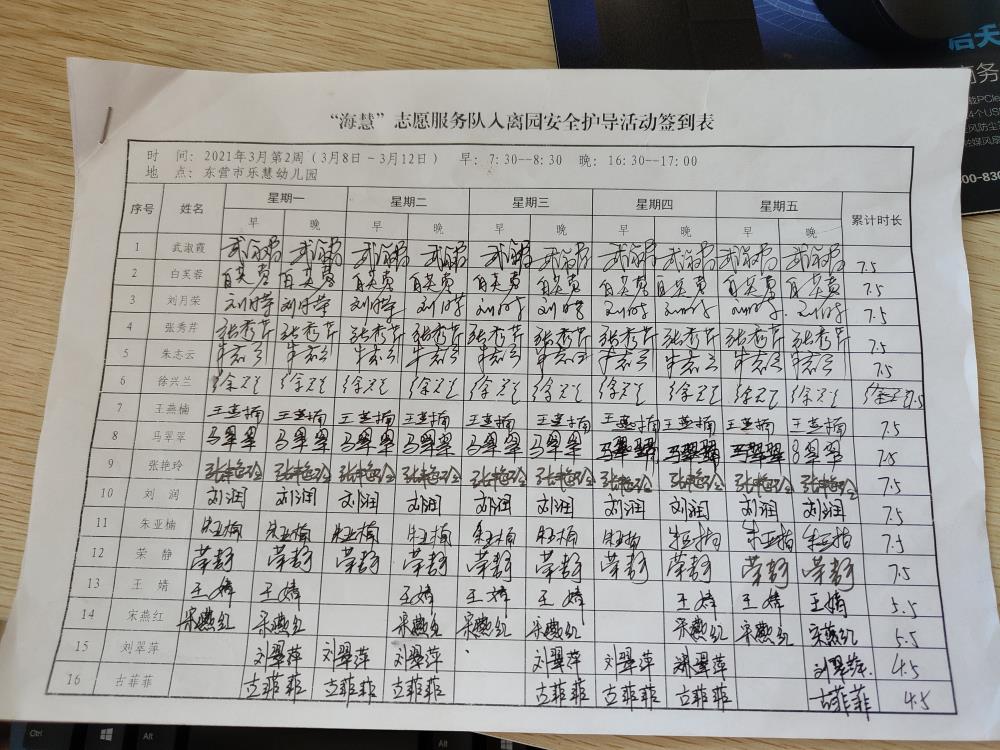 “海慧”志愿服务队入离园安全护导活动签到表
时 间: 2021年3月第2周（3月8日－3月12日） 早: 7:30--8:30 晚: 16:30--17:00
地 点: 东营市乐慧幼儿园
序号 姓名 星期一 星期二 星期三 星期四 星期五 累计时长
早 晚 早 晚 早 晚 早 晚 早 晚
1 武淑霞 武淑霞 武淑霞 武淑霞 武淑霞 武淑霞 武淑霞 武淑霞 武淑霞 武淑霞 武淑霞 7.5
2 白芙蓉 白芙蓉 白芙蓉 白芙蓉 白芙蓉 白芙蓉 白芙蓉 白芙蓉 白芙蓉 白芙蓉 白芙蓉 7.5
3 刘月荣 刘月荣 刘月荣 刘月荣 刘月荣 刘月荣 刘月荣 刘月荣 刘月荣 刘月荣 刘月荣 7.5
4 张秀芹 张秀芹 张秀芹 张秀芹 张秀芹 张秀芹 张秀芹 张秀芹 张秀芹 张秀芹 张秀芹 7.5
5 朱志云 朱志云 朱志云 朱志云 朱志云 朱志云 朱志云 朱志云 朱志云 朱志云 朱志云 7.5
6 徐兴兰 徐兴兰 徐兴兰 徐兴兰 徐兴兰 徐兴兰 徐兴兰 徐兴兰 徐兴兰 徐兴兰 徐兴兰 7.5
7 王燕楠 王燕楠 王燕楠 王燕楠 王燕楠 王燕楠 王燕楠 王燕楠 王燕楠 王燕楠 王燕楠 7.5
8 马翠翠 马翠翠 马翠翠 马翠翠 马翠翠 马翠翠 马翠翠 马翠翠 马翠翠 马翠翠 马翠翠 7.5
9 张艳玲 张艳玲 张艳玲 张艳玲 张艳玲 张艳玲 张艳玲 张艳玲 张艳玲 张艳玲 张艳玲 7.5
10 刘 润 刘润 刘润 刘润 刘润 刘润 刘润 刘润 刘润 刘润 刘润 7.5
11 朱亚楠 朱亚楠 朱亚楠 朱亚楠 朱亚楠 朱亚楠 朱亚楠 朱亚楠 朱亚楠 朱亚楠 朱亚楠 7.5
12 荣 静 荣静 荣静 荣静 荣静 荣静 荣静 荣静 荣静 荣静 荣静 7.5
13 王 婧 王婧 王婧 王婧 王婧 王婧 王婧 王婧 王婧 5.5
14 宋燕红 宋燕红 宋燕红 宋燕红 宋燕红 宋燕红 宋燕红 宋燕红 宋燕红 5.5
15 刘翠萍 刘翠萍 刘翠萍 刘翠萍 刘翠萍 刘翠萍 刘翠萍 刘翠萍 4.5
16 古菲菲 古菲菲 古菲菲 古菲菲 古菲菲 古菲菲 古菲菲 古菲菲 4.5
Alt
Alt